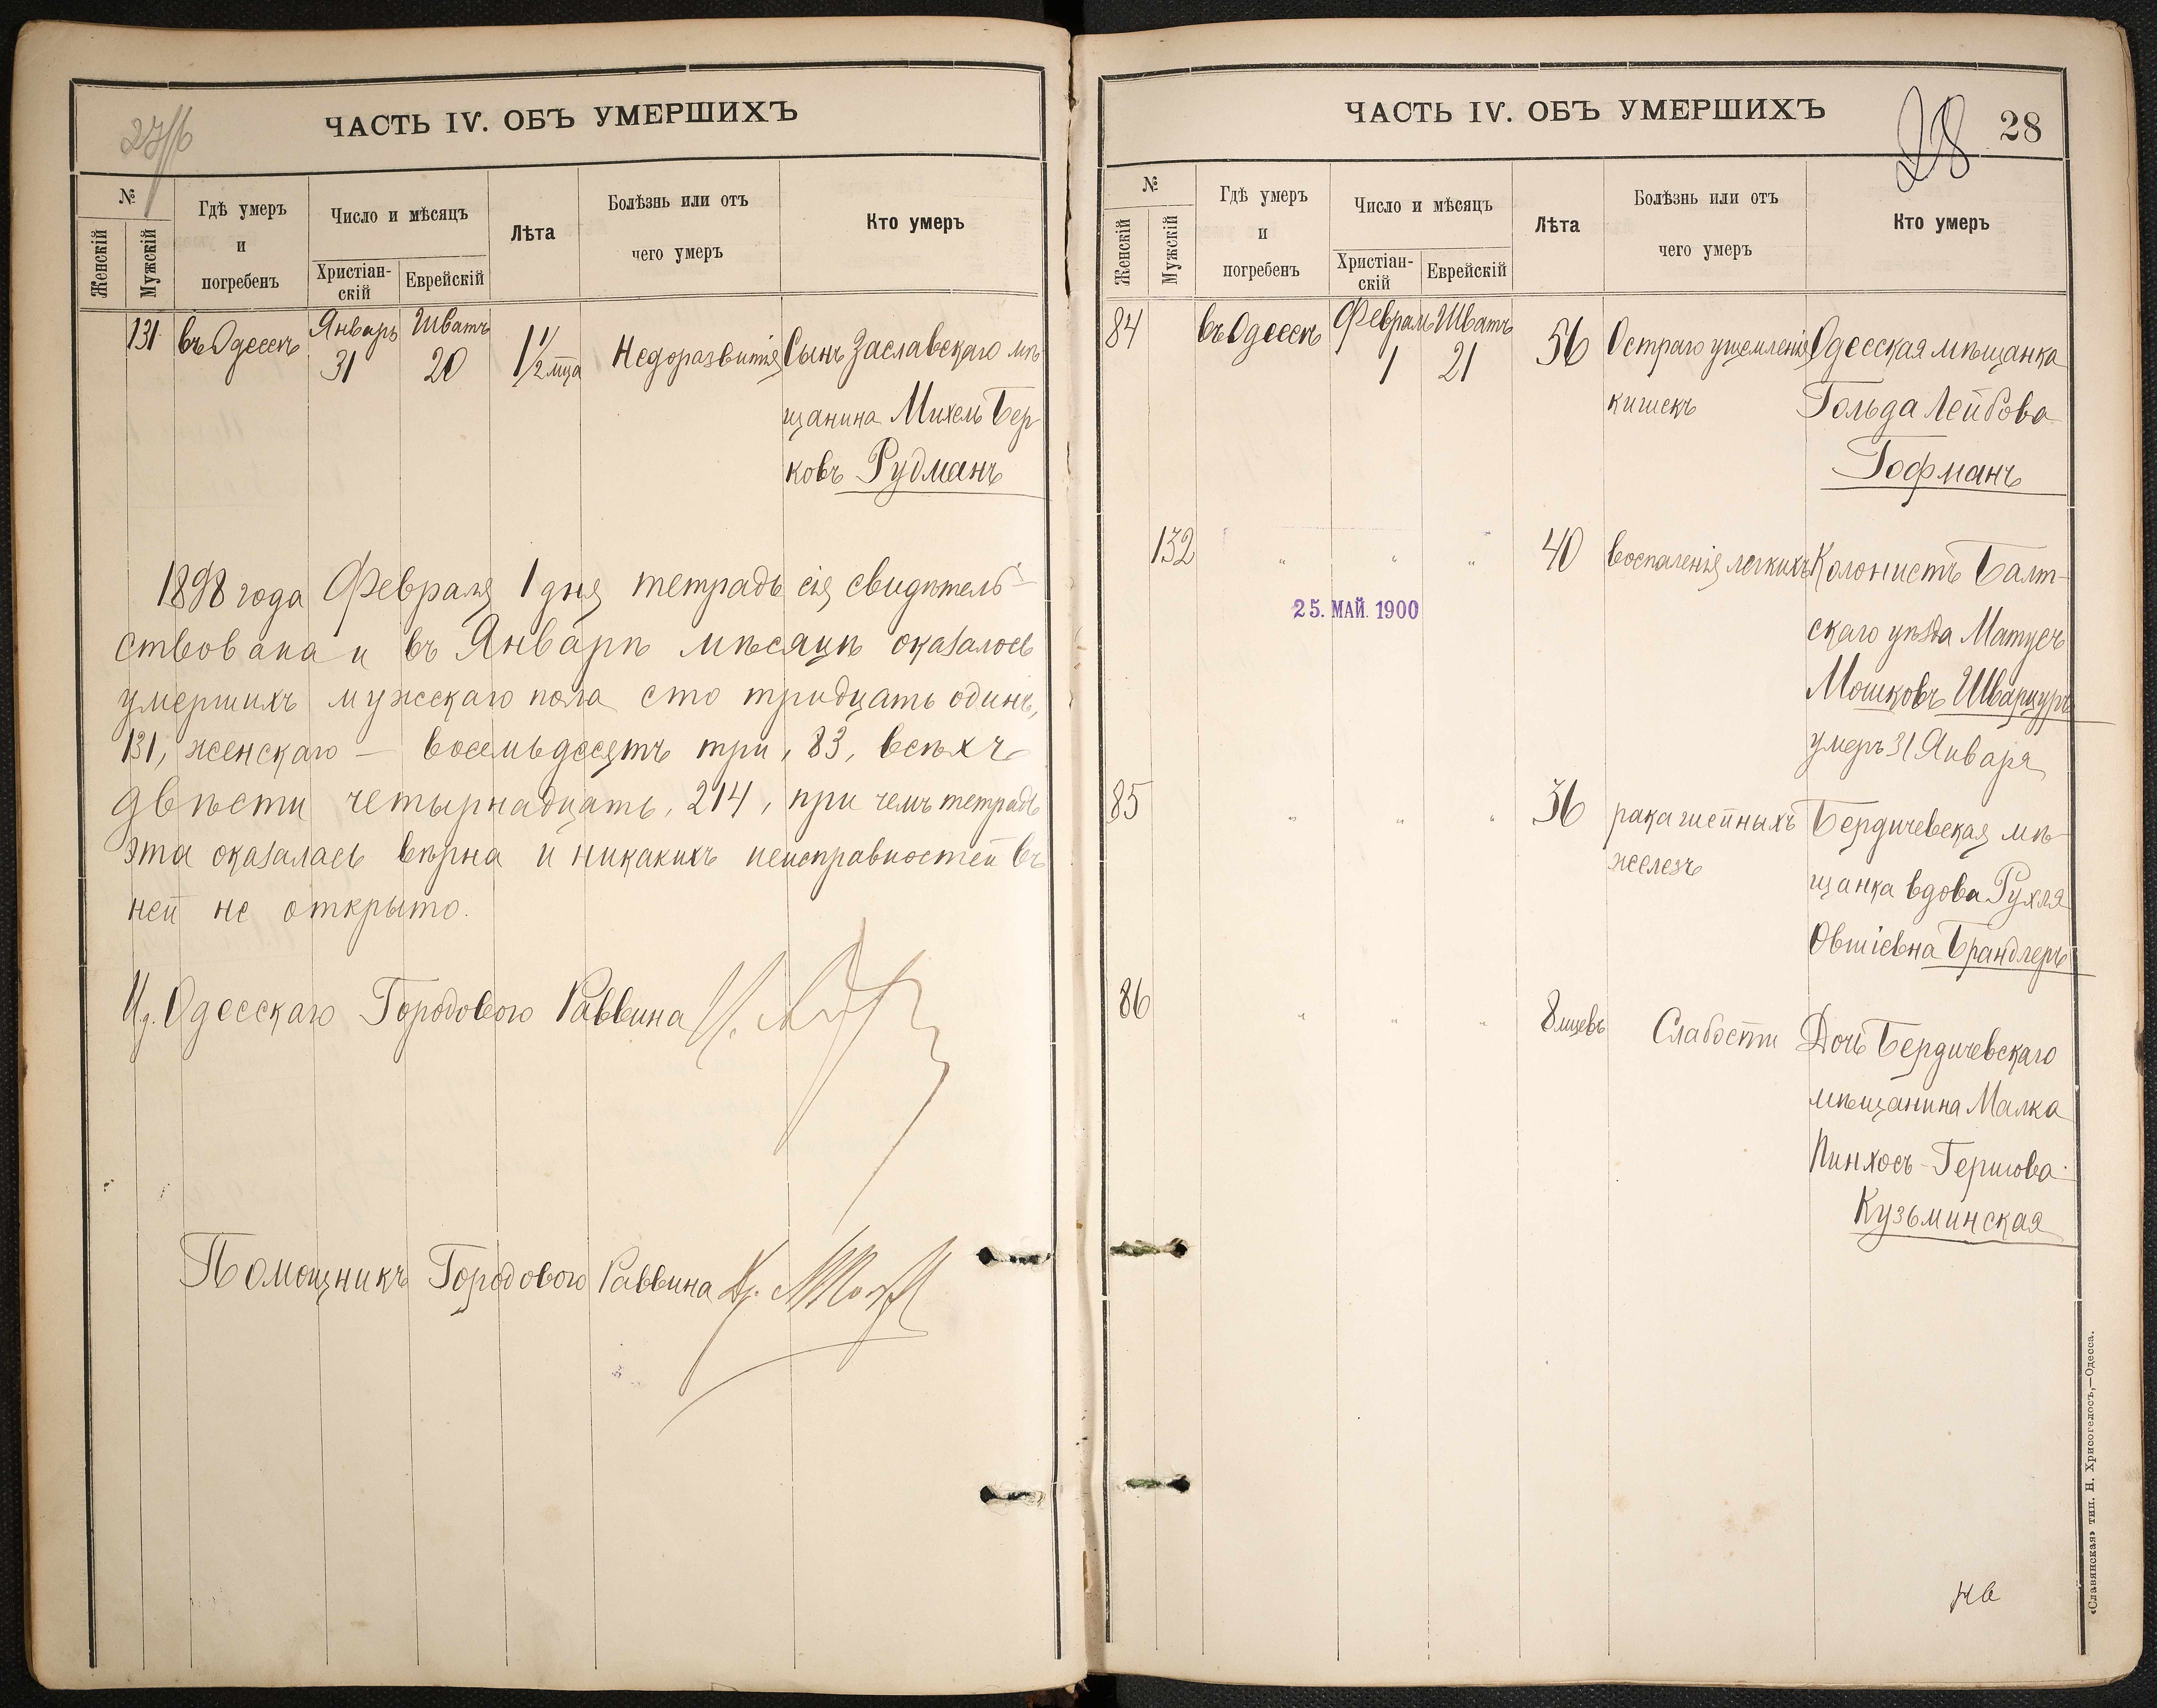 27/б
ЧАСТЬ IV. ОБЪ УМЕРШИХЪ
№
Женскій
Мужскій
Гдѣ умеръ
и
погребенъ
Число и мѣсяцъ
Христіан-
скій
Еврейскій
Лѣта
Болѣзнь или отъ
чего умеръ
Кто умеръ
131 въ Одессѣ Январь 31 Шватъ 20 1 1/2 мца Недоразвитія Сынъ Заславскаго мѣ-
щанина Михель Бер-
ковъ Рудманъ
1898 года Февраля 1 дня тетрадь сія свидѣтель-
ствована и въ Январѣ мѣсяцѣ оказалось
умершихъ мужскаго пола сто тридцать одинъ,
131, женскаго — восемьдесятъ три, 83, всѣхъ
двѣсти четырнадцать, 214, при чемъ тетрадь
эта оказалась вѣрна и никакихъ неисправностей въ
ней не открыто.
И. д. Одесскаго Городового Раввина
Помощникъ Городового Раввина
ЧАСТЬ IV. ОБЪ УМЕРШИХЪ
28
28
№
Женскій
Мужскій
Гдѣ умеръ
и
погребенъ
Число и мѣсяцъ
Христіан-
скій
Еврейскій
Лѣта
Болѣзнь или отъ
чего умеръ
Кто умеръ
84 въ Одессѣ Февраль 1 Шватъ 21 56 Остраго ущемленія Одесская мѣщанка
кишекъ Гольда Лейбова
Гофманъ
132 " " " 40 воспаленія легкихъ Колонистъ Балт-
25. МАЙ. 1900
скаго уѣзда Матусъ
Мошковъ Шварцуръ
умеръ 31 Января
85 " " " 36 рака шейныхъ Бердичевская мѣ-
железъ щанка вдова Рухля
Овшіевна Брандлеръ
86 " " " 8 мцевъ Слабости Дочь Бердичевскаго
мѣщанина Малка
Пинхосъ-Гершова
Кузьминская
«Славянская» тип. Н. Хрисогелосъ,—Одесса.